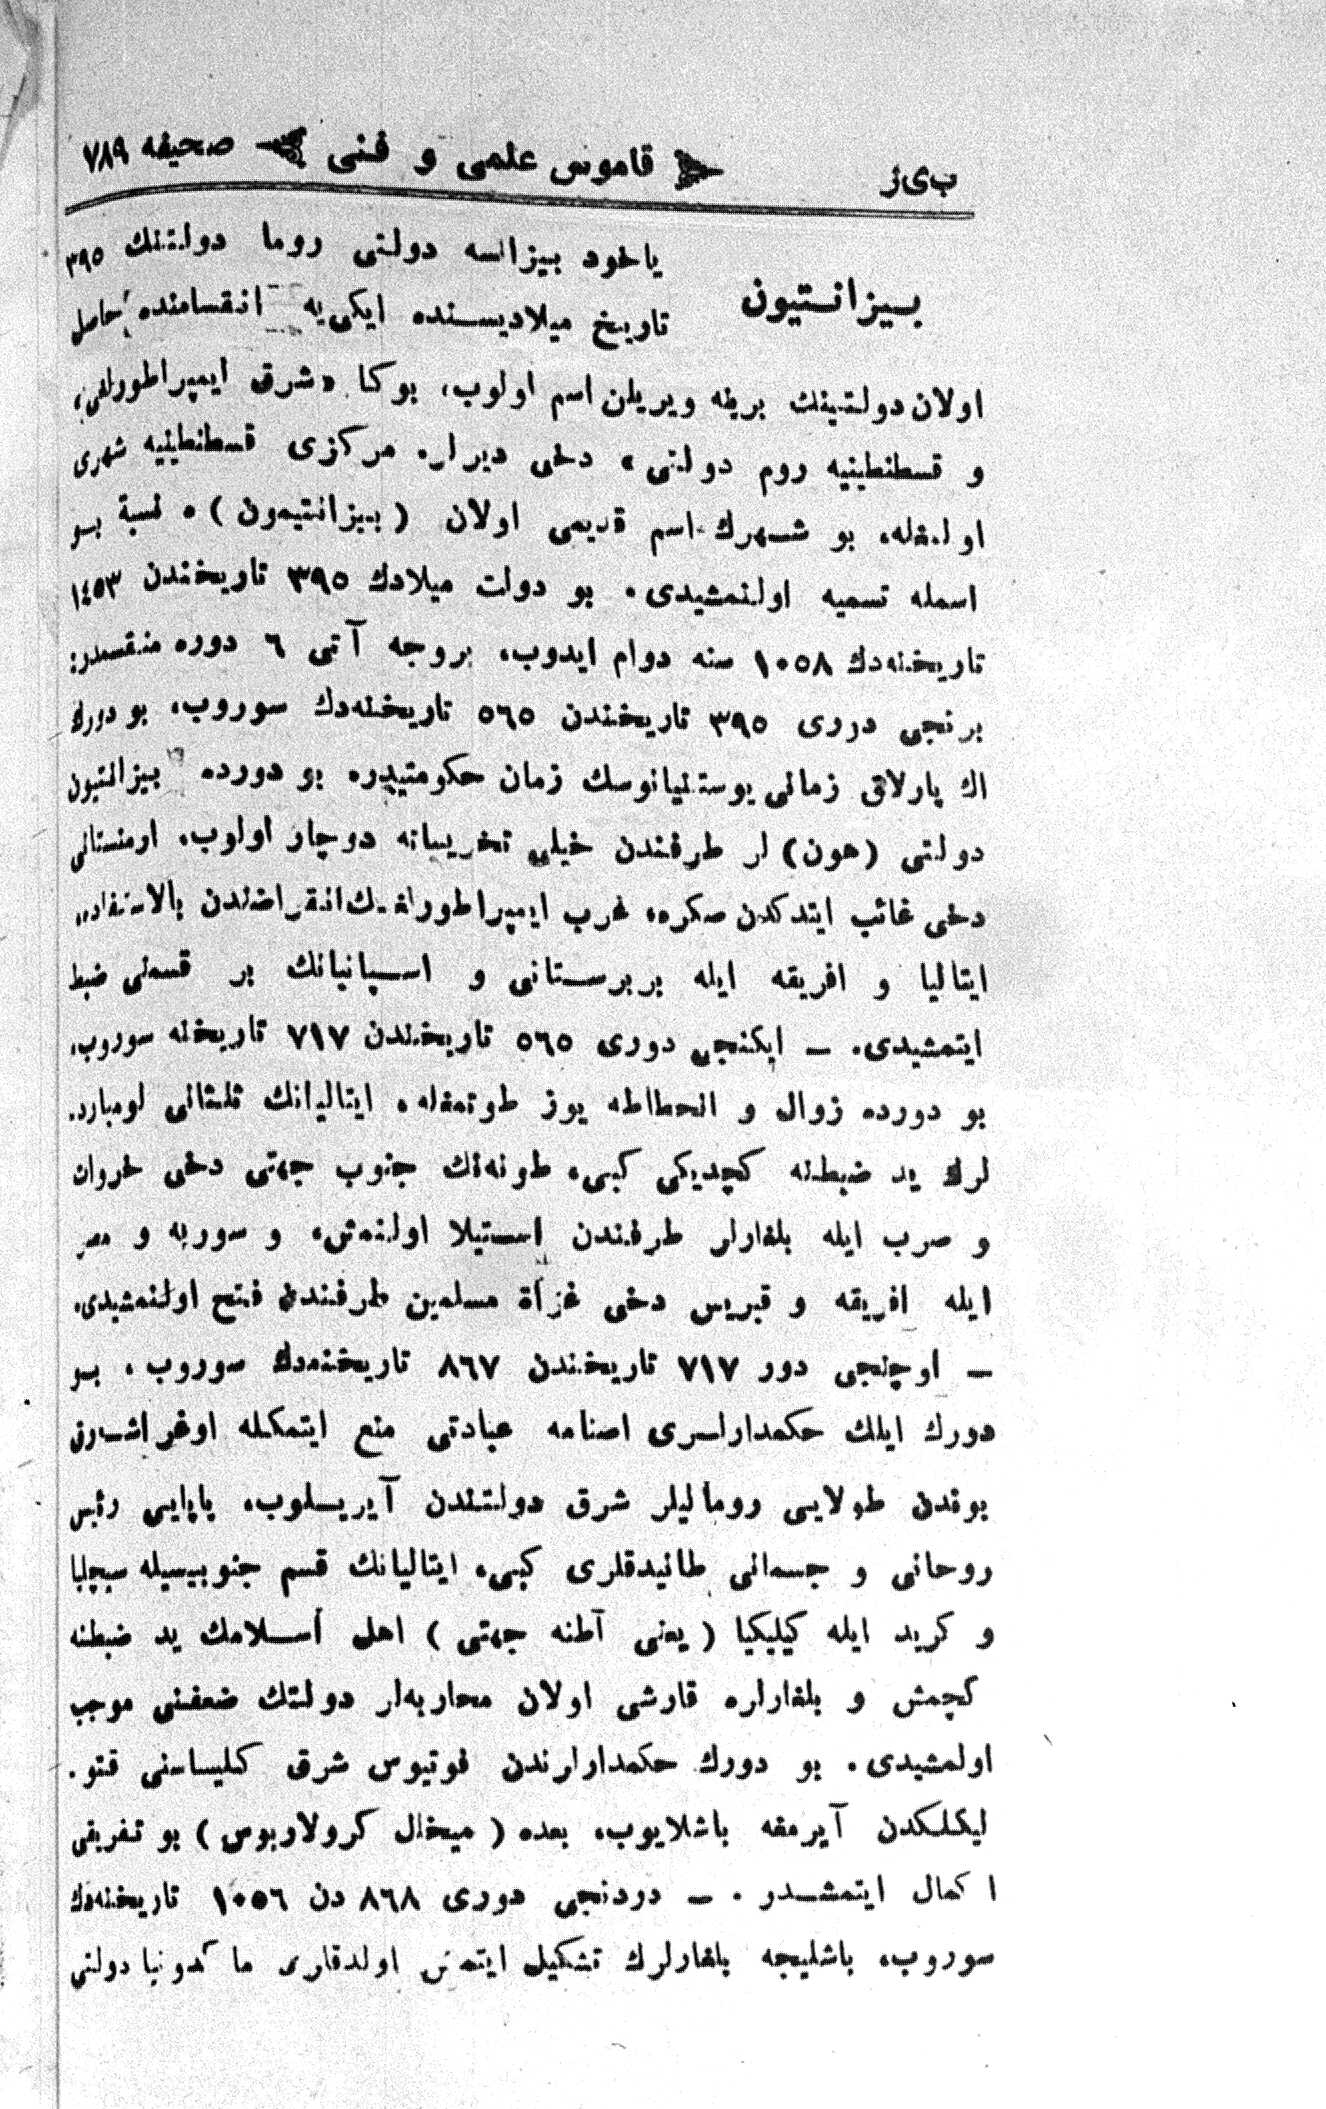 ب‌ی‌ز قاموس علمی و فنی صحیفه ٧٨٩
بیزانتیون
یاخود بیزانسه دولتی روما دولتنك ٣٩٥
تاریخ میلادیسنده ایکی‌یه انقسامنده حاصل
اولان دولتینك برینه ویریلن اسم اولوب، بوکا «شرق ایمپراطورلغی،
و قسطنطینیه روم دولتی» دخی دیرلر. مرکزی قسطنطینیه شهری
اولمغله، بو شهرك اسم قدیمی اولان (بیزانتیون)ه نسبة بو
اسمله تسمیه اولنمشیدی. بو دولت میلادك ٣٩٥ تاریخندن ١٤٥٣
تاریخنه‌دك ١٠٥٨ سنه دوام ایدوب، بروجه آتی ٦ دوره منقسمدر:
برنجی دوری ٣٩٥ تاریخندن ٥٦٥ تاریخنه‌دك سوروب، بو دورك
اك پارلاق زمانی یوستنیانوسك زمان حکومتیدر. بو دورده بیزانتیون
دولتی (هون) لر طرفندن خیلی تخریباته دوچار اولوب، ارمنستانی
دخی غائب ایتدکدن صکره، غرب ایمپراطورلغنك انقراضندن بالاستفاده،
ایتالیا و افریقه ایله بربرستانی و اسپانیانك بر قسمنی ضبط
ایتمشیدی. — ایکنجی دوری ٥٦٥ تاریخندن ٧١٧ تاریخنه سوروب،
بو دورده زوال و انحطاطه یوز طوتمغله، ایتالیانك ثلثانی لومبارد
لرك ید ضبطنه کچدیکی کبی، طونه‌نك جنوب جهتی دخی خروات
و صرب ایله بلغارلر طرفندن استیلا اولنمش، و سوریه و مصر
ایله افریقه و قبریس دخی غزاة مسلمین طرفندن فتح اولنمشیدی.
— اوچنجی دور ٧١٧ تاریخندن ٨٦٧ تاریخنه‌دك سوروب، بو
دورك ایلك حکمدارلری اصنامه عبادتی منع ایتمکله اوغراشدرق
بوندن طولایی رومالیلر شرق دولتندن آیریلوب، پاپایی رئیس
روحانی و جسمانی طانیدقلری کبی، ایتالیانك قسم جنوبیسیله سیچلیا
و کرید ایله کیلیکیا (یعنی آطنه جهتی) اهل اسلامك ید ضبطنه
کچمش و بلغارلره قارشی اولان محاربه‌لر دولتك ضعفنی موجب
اولمشیدی. بو دورك حکمدارلرندن فوتیوس شرق کلیساسنی قتو.
لیکلکدن آیرمغه باشلایوب، بعده (میخال کرولاریوس) بو تفریقی
اکمال ایتمشدر. — دردنجی دوری ٨٦٨ دن ١٠٥٦ تاریخنه‌دك
سوروب، باشلیجه بلغارلرك تشکیل ایتمش اولدقلری ماکدونیا دولتی